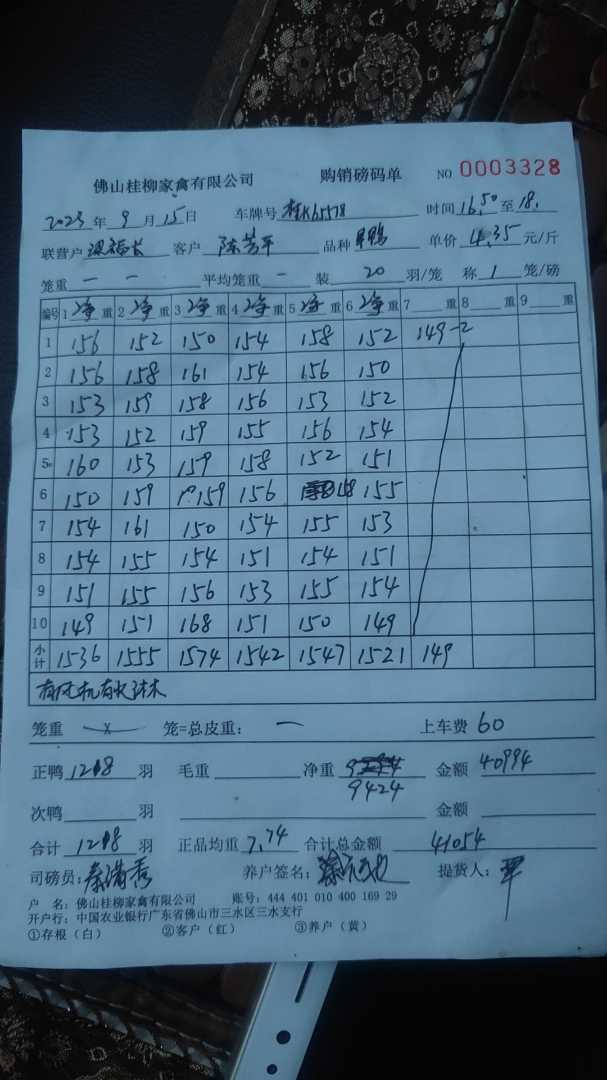 佛山桂柳家禽有限公司 购销磅码单 NO 0003328
2023年9月15日 车牌号 桂K65578 时间16:50至18:
联营户 客户 陈芳平 品种 单价 4.35 元/斤
笼重 一 一 平均笼重 一 装 20 羽/笼 称 1 笼/磅
编号 1净重 2净重 3净重 4净重 5净重 6净重 7 重 8 重 9 重
1 156 152 150 154 158 152 149-2
2 156 158 161 154 156 150
3 153 159 158 156 153 152
4 153 152 159 155 156 154
5 160 153 159 158 152 151
6 150 159 159 156 158 155
7 154 161 150 154 155 153
8 154 155 154 151 154 151
9 151 155 156 153 155 154
10 149 151 168 151 150 149
小计 1536 1555 1574 1542 1547 1521 149
有风机有水沐
笼重 x 笼=总皮重: 一 上车费 60
正鸭 1218 羽 毛重 净重 9424 金额 40994
次鸭 羽 金额
合计 1218 羽 正品均重 7.74 合计总金额 41054
司磅员: 秦满秀 养户签名: 提货人:
户 名: 佛山桂柳家禽有限公司 账号: 444 401 010 400 169 29
开户行: 中国农业银行广东省佛山市三水区三水支行
①存根(白) ②客户(红) ③养户(黄)